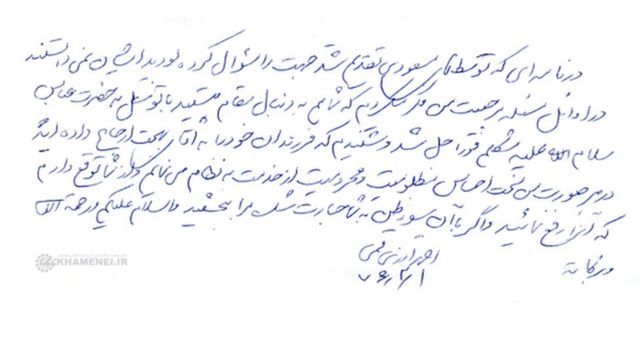 در نامه‌ای که توسط آقای مسعودی تقدیم شد جهت را سؤال کرده بودید ایشان نمی‌دانستند
در اوائل مسئله مرجعیت من فکر میکردم که شما به دنبال مقام هستید با توسل به حضرت عباس
سلام الله علیه مشکلم فوراً حل شد و شنیدم که فرزندان خود را به آقای بهجت ارجاع داده‌اید
در هر صورت من احساس مظلومیت و محرومیت از خدمت به نظام می‌نمایم و از شما توقع دارم
که آنرا رفع نمائید و اگر با آن سوء ظن به شما جسارت شد مرا ببخشید والسلام علیکم و رحمة الله
و برکاته
احمد آذری قمی
KHAMENEI.IR